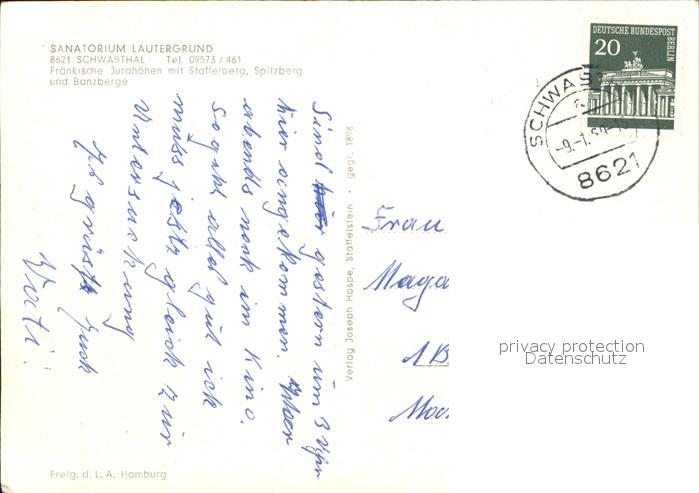 SANATORIUM LAUTERGRUND
8621 SCHWABTHAL Tel. 09573 / 461
Fränkische Jurahöhen mit Staffelberg, Spitzberg
und Banzberge
DEUTSCHE BUNDESPOST
BERLIN
20
SCHWAB
-9.-1.69-16
8621
Sind hier gestern um 3 Uhr
hier angekommen. Waren
abends noch im Kino.
Soweit alles gut ich
muss jetzt gleich zur
Untersuchung
Es grüsst Euch
Vati!
Verlag Joseph Haspe, Staffelstein · gegr. 1898
Frau
Maga
1 B
privacy protection
Datenschutz
Freig. d. L. A. Hamburg